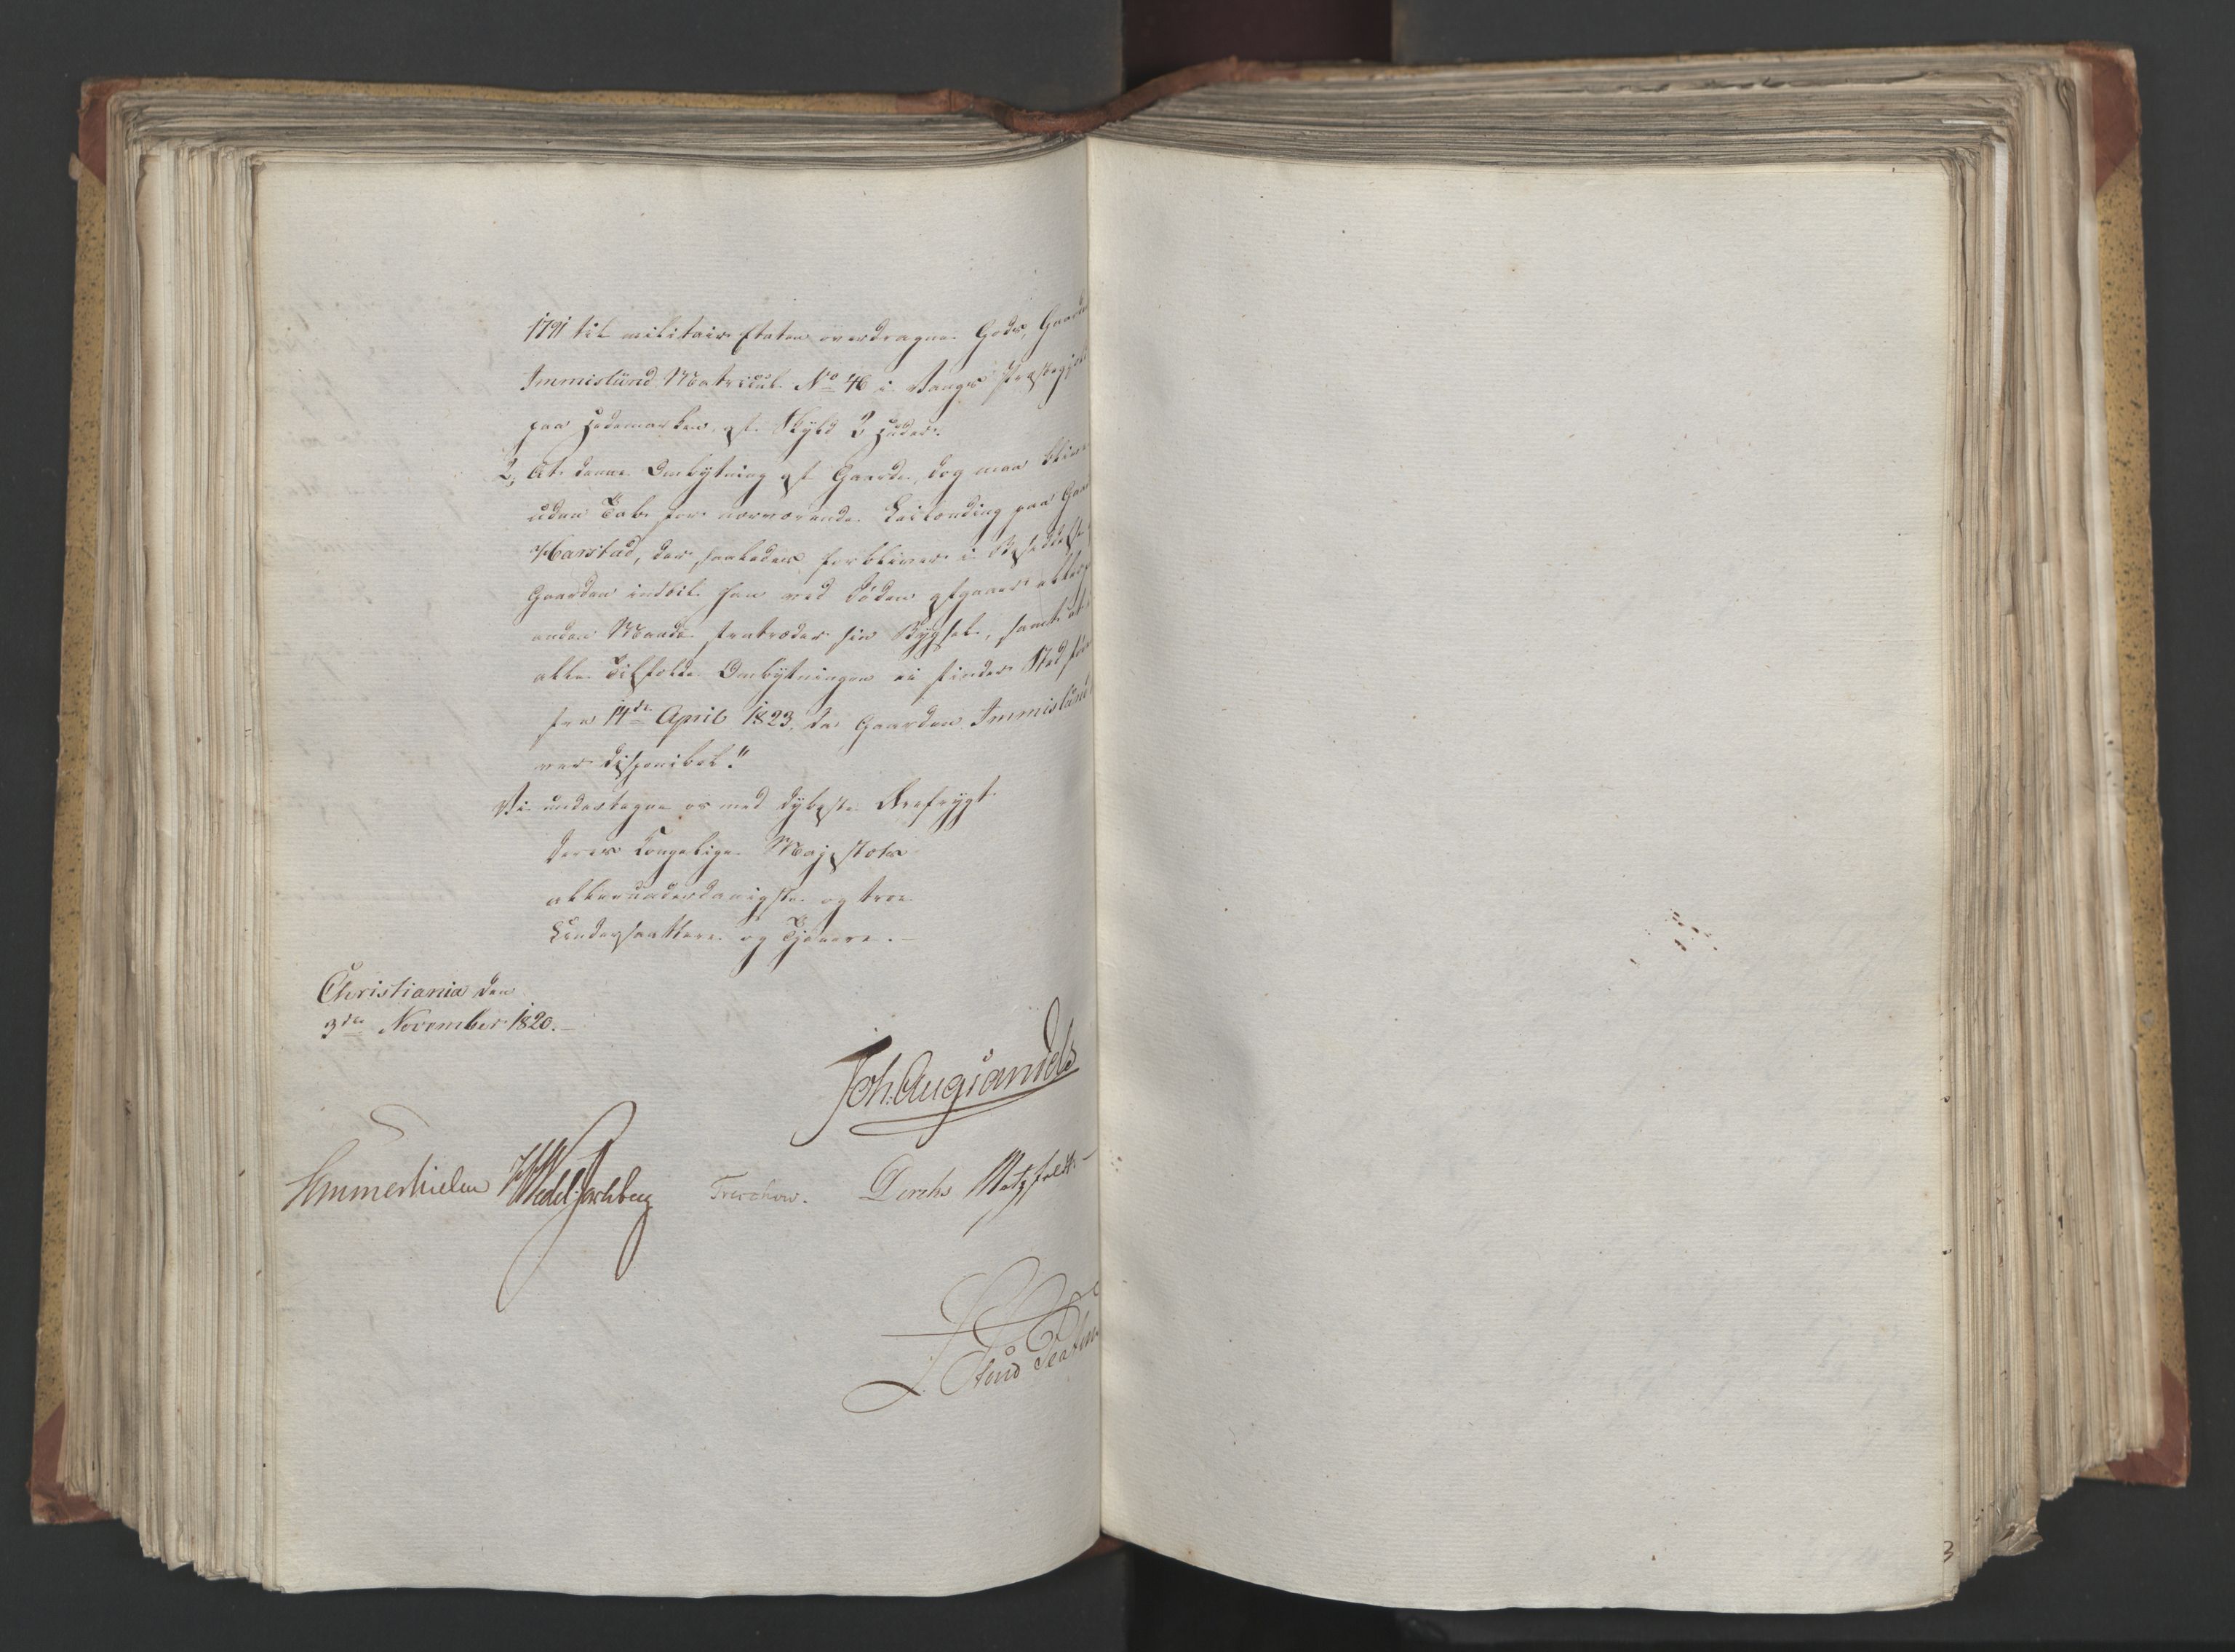 1791 til militair Etaten overdragne Gods, Gaarden
Immislund Matricul No 46 i Vangs Præstegjeld
paa Hedemarken, af Skyld 2 Huder.
2, At denne Ombytning af Gaarde, dog maa blive
uden Tab for nærværende Leilænding paa Gaarden
Harstad, der saaledes forbliver i Besiddelse af
Gaarden indtil han ved Døden afgaaer eller paa
anden Maade fratræder sin Bygsel, samt at i
alle Tilfælde Ombytningen ei finder Sted før
fra 14de April 1823 da Gaarden Immislund
er disponibel."
Vi undertegne os med dybeste Ærefrygt
Deres Kongelige Majestæts
allerunderdanigste og troe
Undersaatter og Tjenere.
Christiania den
3die November 1820.
Joh: Aug: Sandels
Sommerhielm Wedel Jarlsberg Treschow. Diriks Motzfeldt
3